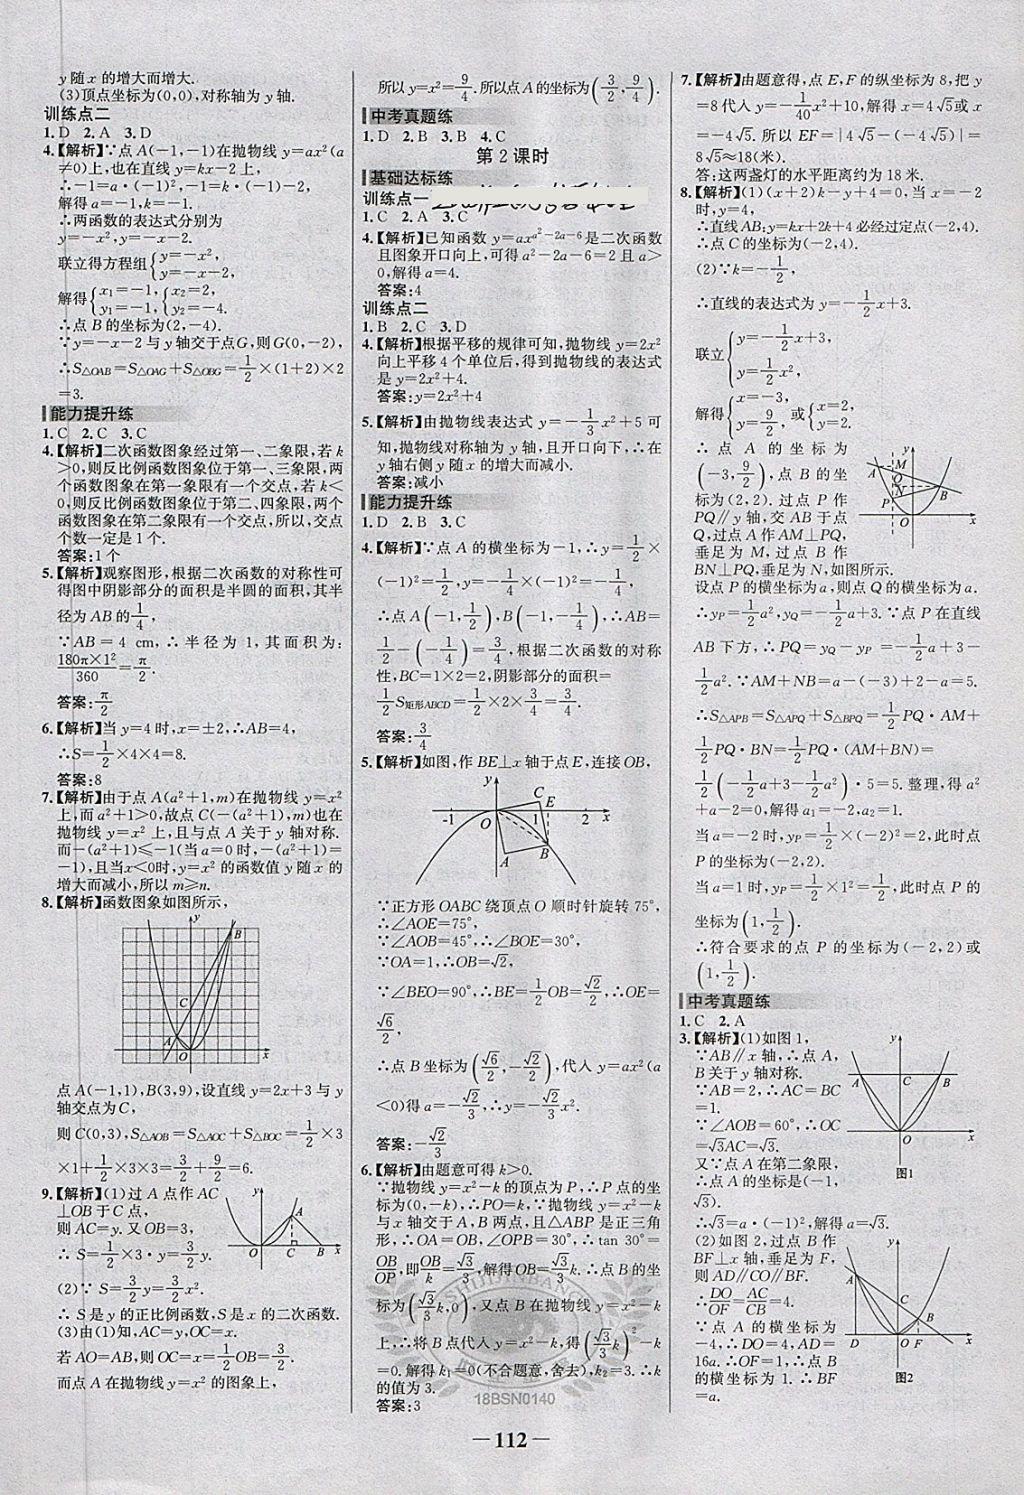 y随x的增大而增大.
(3)顶点坐标为(0,0),对称轴为y轴.
训练点二
1. D 2. A 3. D
4.【解析】∵点A(-1,-1)在抛物线y=ax²(a
≠0)上,也在直线y=kx-2上,
∴-1=a·(-1)²,-1=k·(-1)-2,
解得a=-1,k=-1.
∴两函数的表达式分别为
y=-x²,y=-x-2.
联立得方程组{y=-x², y=-x-2,
解得{x₁=-1, y₁=-1, {x₂=2, y₂=-4.
∴点B的坐标为(2,-4).
∵y=-x-2与y轴交于点G,则G(0,-2),
∴S△OAB=S△OAG+S△OBG=1/2×(1+2)×2
=3.
能力提升练
1. C 2. C 3. C
4.【解析】二次函数图象经过第一、二象限,若k
>0,则反比例函数图象位于第一、三象限,两
个函数图象在第一象限有一个交点,若k<
0,则反比例函数图象位于第二、四象限,两个
函数图象在第二象限有一个交点,所以,交点
个数一定是1个.
答案:1个
5.【解析】观察图形,根据二次函数的对称性可
得图中阴影部分的面积是半圆的面积,其半
径为AB的1/4,
∵AB=4 cm,∴半径为1,其面积为:
180π×1²/360=π/2.
答案:π/2
6.【解析】当y=4时,x=±2,∴AB=4,
∴S=1/2×4×4=8.
答案:8
7.【解析】由于点A(a²+1,m)在抛物线y=x²
上,而a²+1>0,故点C(-(a²+1),m)也在
抛物线y=x²上,且与点A关于y轴对称.
而-(a²+1)≤-1(当a=0时,-(a²+1)=
-1),且当x<0时,y=x²的函数值y随x的
增大而减小,所以m≥n.
8.【解析】函数图象如图所示,
y
B
C
A
O
x
点A(-1,1),B(3,9),设直线y=2x+3与y
轴交点为C,
则C(0,3),S△AOB=S△AOC+S△BOC=1/2×3
×1+1/2×3×3=3/2+9/2=6.
9.【解析】(1)过A点作AC
⊥OB于C点,
则AC=y.又OB=3,
∴S=1/2×3·y=3/2y.
y
A
O C B x
(2)∵S=1/2×3·y=3/2y.
∴S是y的正比例函数,S是x的二次函数.
(3)由(1)知,AC=y,OC=x.
若AO=AB,则OC=CB=1/2OB=3/2.
而点A在抛物线y=x²的图象上,
所以y=x²=9/4.所以点A的坐标为(3/2,9/4).
中考真题练
1. D 2. B 3. B 4. C
第2课时
基础达标练
训练点一
1. C 2. A 3. C
4.【解析】已知函数y=ax^(a²-2a-6)是二次函数
且图象开口向上,可得a²-2a-6=2且a>
0,解得a=4.
答案:4
训练点二
1. B 2. C 3. D
4.【解析】根据平移的规律可知,抛物线y=2x²
向上平移4个单位后,得到抛物线的表达式
是y=2x²+4.
答案:y=2x²+4
5.【解析】由抛物线表达式y=-1/3x²+5可
知,抛物线对称轴为y轴,且开口向下,∴在
y轴右侧y随x的增大而减小.
答案:减小
能力提升练
1. D 2. B 3. C
4.【解析】∵点A的横坐标为-1,∴y=1/2×
(-1)²=1/2,y=-1/4×(-1)²=-1/4,
∴点A(-1,1/2),B(-1,-1/4),∴AB=
1/2-(-1/4)=3/4,根据二次函数的对称
性,BC=1×2=2,阴影部分的面积=
1/2S矩形ABCD=1/2×2×3/4=3/4.
答案:3/4
5.【解析】如图,作BE⊥x轴于点E,连接OB,
y
C E
-1 O 1 2 x
A B
∵正方形OABC绕顶点O顺时针旋转75°,
∴∠AOE=75°,
∵∠AOB=45°,∴∠BOE=30°,
∵OA=1,∴OB=√2,
∵∠BEO=90°,∴BE=1/2OB=√2/2,∴OE=
√6/2,
∴点B坐标为(√6/2,-√2/2),代入y=ax²(a
<0)得a=-√2/3,∴y=-√2/3x².
答案:-√2/3
6.【解析】由题意可得k>0.
∵抛物线y=x²-k的顶点为P,∴P点的坐
标为(0,-k),∴PO=k,∵抛物线y=x²-k
与x轴交于A,B两点,且△ABP是正三角
形,∴OA=OB,∠OPB=30°,∴tan 30°=
OB/OP,即OB/k=√3/3,解得OB=√3/3k.∴点B的坐
标为(√3/3k,0),又点B在抛物线y=x²-k
上,∴将B点代入y=x²-k,得(√3/3k)²-
k=0.解得k₁=0(不合题意,舍去),k₂=3.∴k
的值为3.
答案:3
18BSN0140
7.【解析】由题意得,点E,F的纵坐标为8,把y
=8代入y=-1/40x²+10,解得x=4√5或x
=-4√5.所以EF=|4√5-(-4√5)|=
8√5≈18(米).
答:这两盏灯的水平距离约为18米.
8.【解析】(1)(x+2)k-y+4=0,当x=-2
时,y=4,
∴直线AB:y=kx+2k+4必经过定点(-2,4).
∴点C的坐标为(-2,4).
(2)∵k=-1/2,
∴直线的表达式为y=-1/2x+3.
联立{y=-1/2x+3, y=1/2x²,
解得{x=-3, y=9/2, 或{x=2, y=2.
∴点A的坐标为
(-3,9/2),点B的坐
标为(2,2).过点P作
PQ∥y轴,交AB于点
Q,过点A作AM⊥PQ,
垂足为M,过点B作
BN⊥PQ,垂足为N,如图所示.
y
A M
Q
N B
P
O x
设点P的横坐标为a,则点Q的横坐标为a.
∴yP=1/2a²,yQ=-1/2a+3.∵点P在直线
AB下方,∴PQ=yQ-yP=-1/2a+3-
1/2a².∵AM+NB=a-(-3)+2-a=5.
∴S△APB=S△APQ+S△BPQ=1/2PQ·AM+
1/2PQ·BN=1/2PQ·(AM+BN)=
1/2(-1/2a+3-1/2a²)·5=5.整理,得a²
+a-2=0,解得a₁=-2,a₂=1.
当a=-2时,yP=1/2×(-2)²=2,此时点
P的坐标为(-2,2).
当a=1时,yP=1/2×1²=1/2,此时点P的
坐标为(1,1/2).
∴符合要求的点P的坐标为(-2,2)或
(1,1/2).
中考真题练
1. C 2. A
3.【解析】(1)如图1,
∵AB∥x轴,∴点A,
B关于y轴对称.
∵AB=2,∴AC=BC
=1.
∵∠AOB=60°,∴OC
=√3AC=√3.
又∵点A在第二象限,
∴点A的坐标是(-1,
√3).
y
A C B
O x
图1
∴√3=a·(-1)²,解得a=√3.
(2)如图2,过点B作
BF⊥x轴,垂足为F,
则AD∥CO∥BF.
∴DO/OF=AC/CB=4.
∵点A的横坐标为
-4,∴DO=4,AD=
16a.∴OF=1,∴点B
的横坐标为1.∴BF
=a.
y
A
C B
D O F x
图2
— 112 —